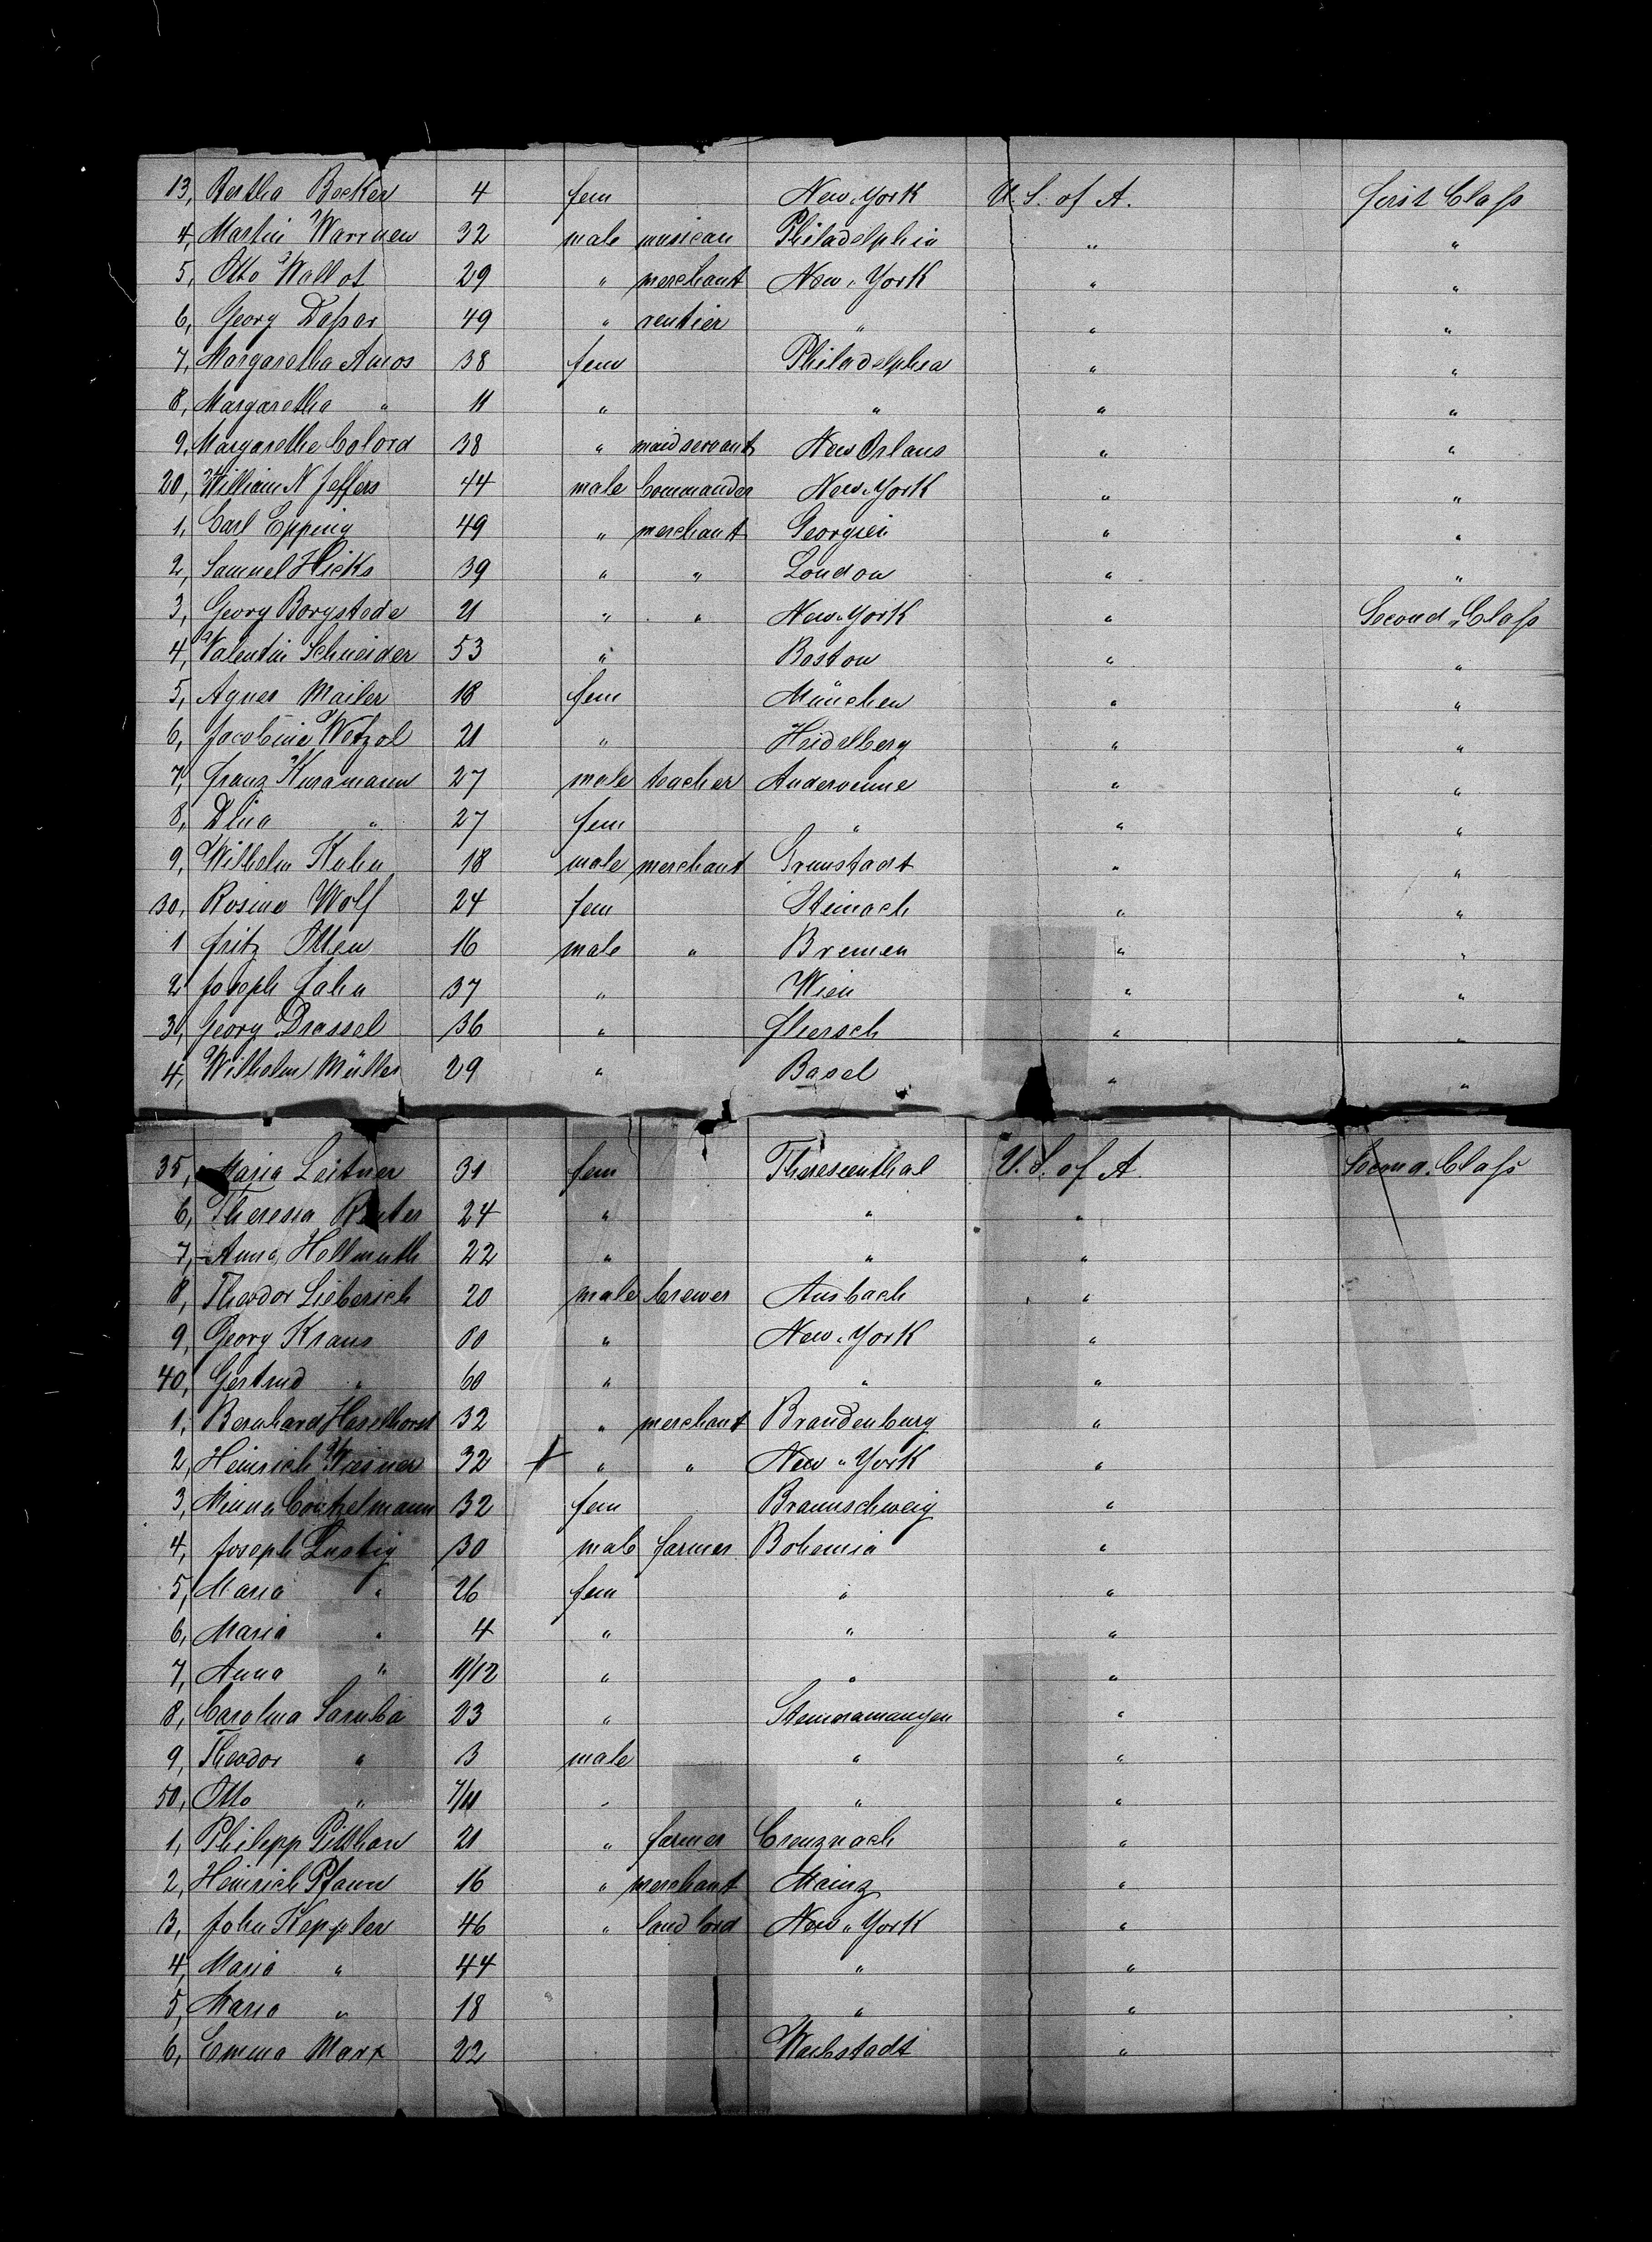 13, Bertha Becker 4 fem New York U. S. of A. first Class
4, Martin Warmen 32 male musican Philadelphia " "
5, Otto Wallot 29 " merchant New York " "
6, Georg Dasser 49 " rentier " " "
7, Margaretha Amos 38 fem Philadelphia " "
8, Margaretha " 11 " " " "
9, Margarethe Colord 38 " maidservant New Orlans " "
20, William N Jeffers 44 male Commander New York " "
1, Carl Epping 49 " merchant Georgien " "
2, Samuel Hicks 39 " " London " "
3, Georg Borgstede 21 " " New York " Second Class
4, Valentin Schneider 53 " Boston " "
5, Agnes Mailer 18 fem München " "
6, Jacobine Wetzel 21 " Heidelberg " "
7, Franz Kuramann 27 male teacher Andervenne " "
8, Dina " 27 fem " " "
9, Wilhelm Kuhn 18 male merchant Grunstadt " "
30, Rosine Wolf 24 fem Steinach " "
1 Fritz Otten 16 male " Bremen " "
2 Joseph Jahn 37 " Wien " "
3, Georg Drassel 36 " " "
4, Wilhelm Müller 29 " Basel " "
35, Maria Leitner 31 fem Theresienthal U. S. of A. Second Class
6, Theresia Reuter 24 " " "
7, Anna Hellmuth 22 " " "
8, Theodor Lieberich 20 male brewer Ansbach "
9, Georg Kraus 60 " New York "
40, Gertrud " 60 " " "
1, Bernhard Haselhorst 32 " merchant Brandenburg "
2, Heinrich Wiesner 32 " " New York "
3, Minna Contzelmann 32 fem Braunschweig "
4, Joseph Lustig 30 male farmer Bohemia "
5, Maria " 26 fem " "
6, Maria " 4 " " "
7, Anna " 11/12 " " "
8, Carolina Saruba 23 " Steinamangen "
9, Theodor " 3 male " "
50, Otto " 7/11 " " "
1, Philipp Pitthan 21 " farmer Creuznach "
2, Heinrich Pfann 16 " merchant Mainz "
3, John Keppler 46 " landlord New York "
4, Maria " 44 " "
5, Maria " 18 " "
6, Emma Marx 22 Waibstadt "